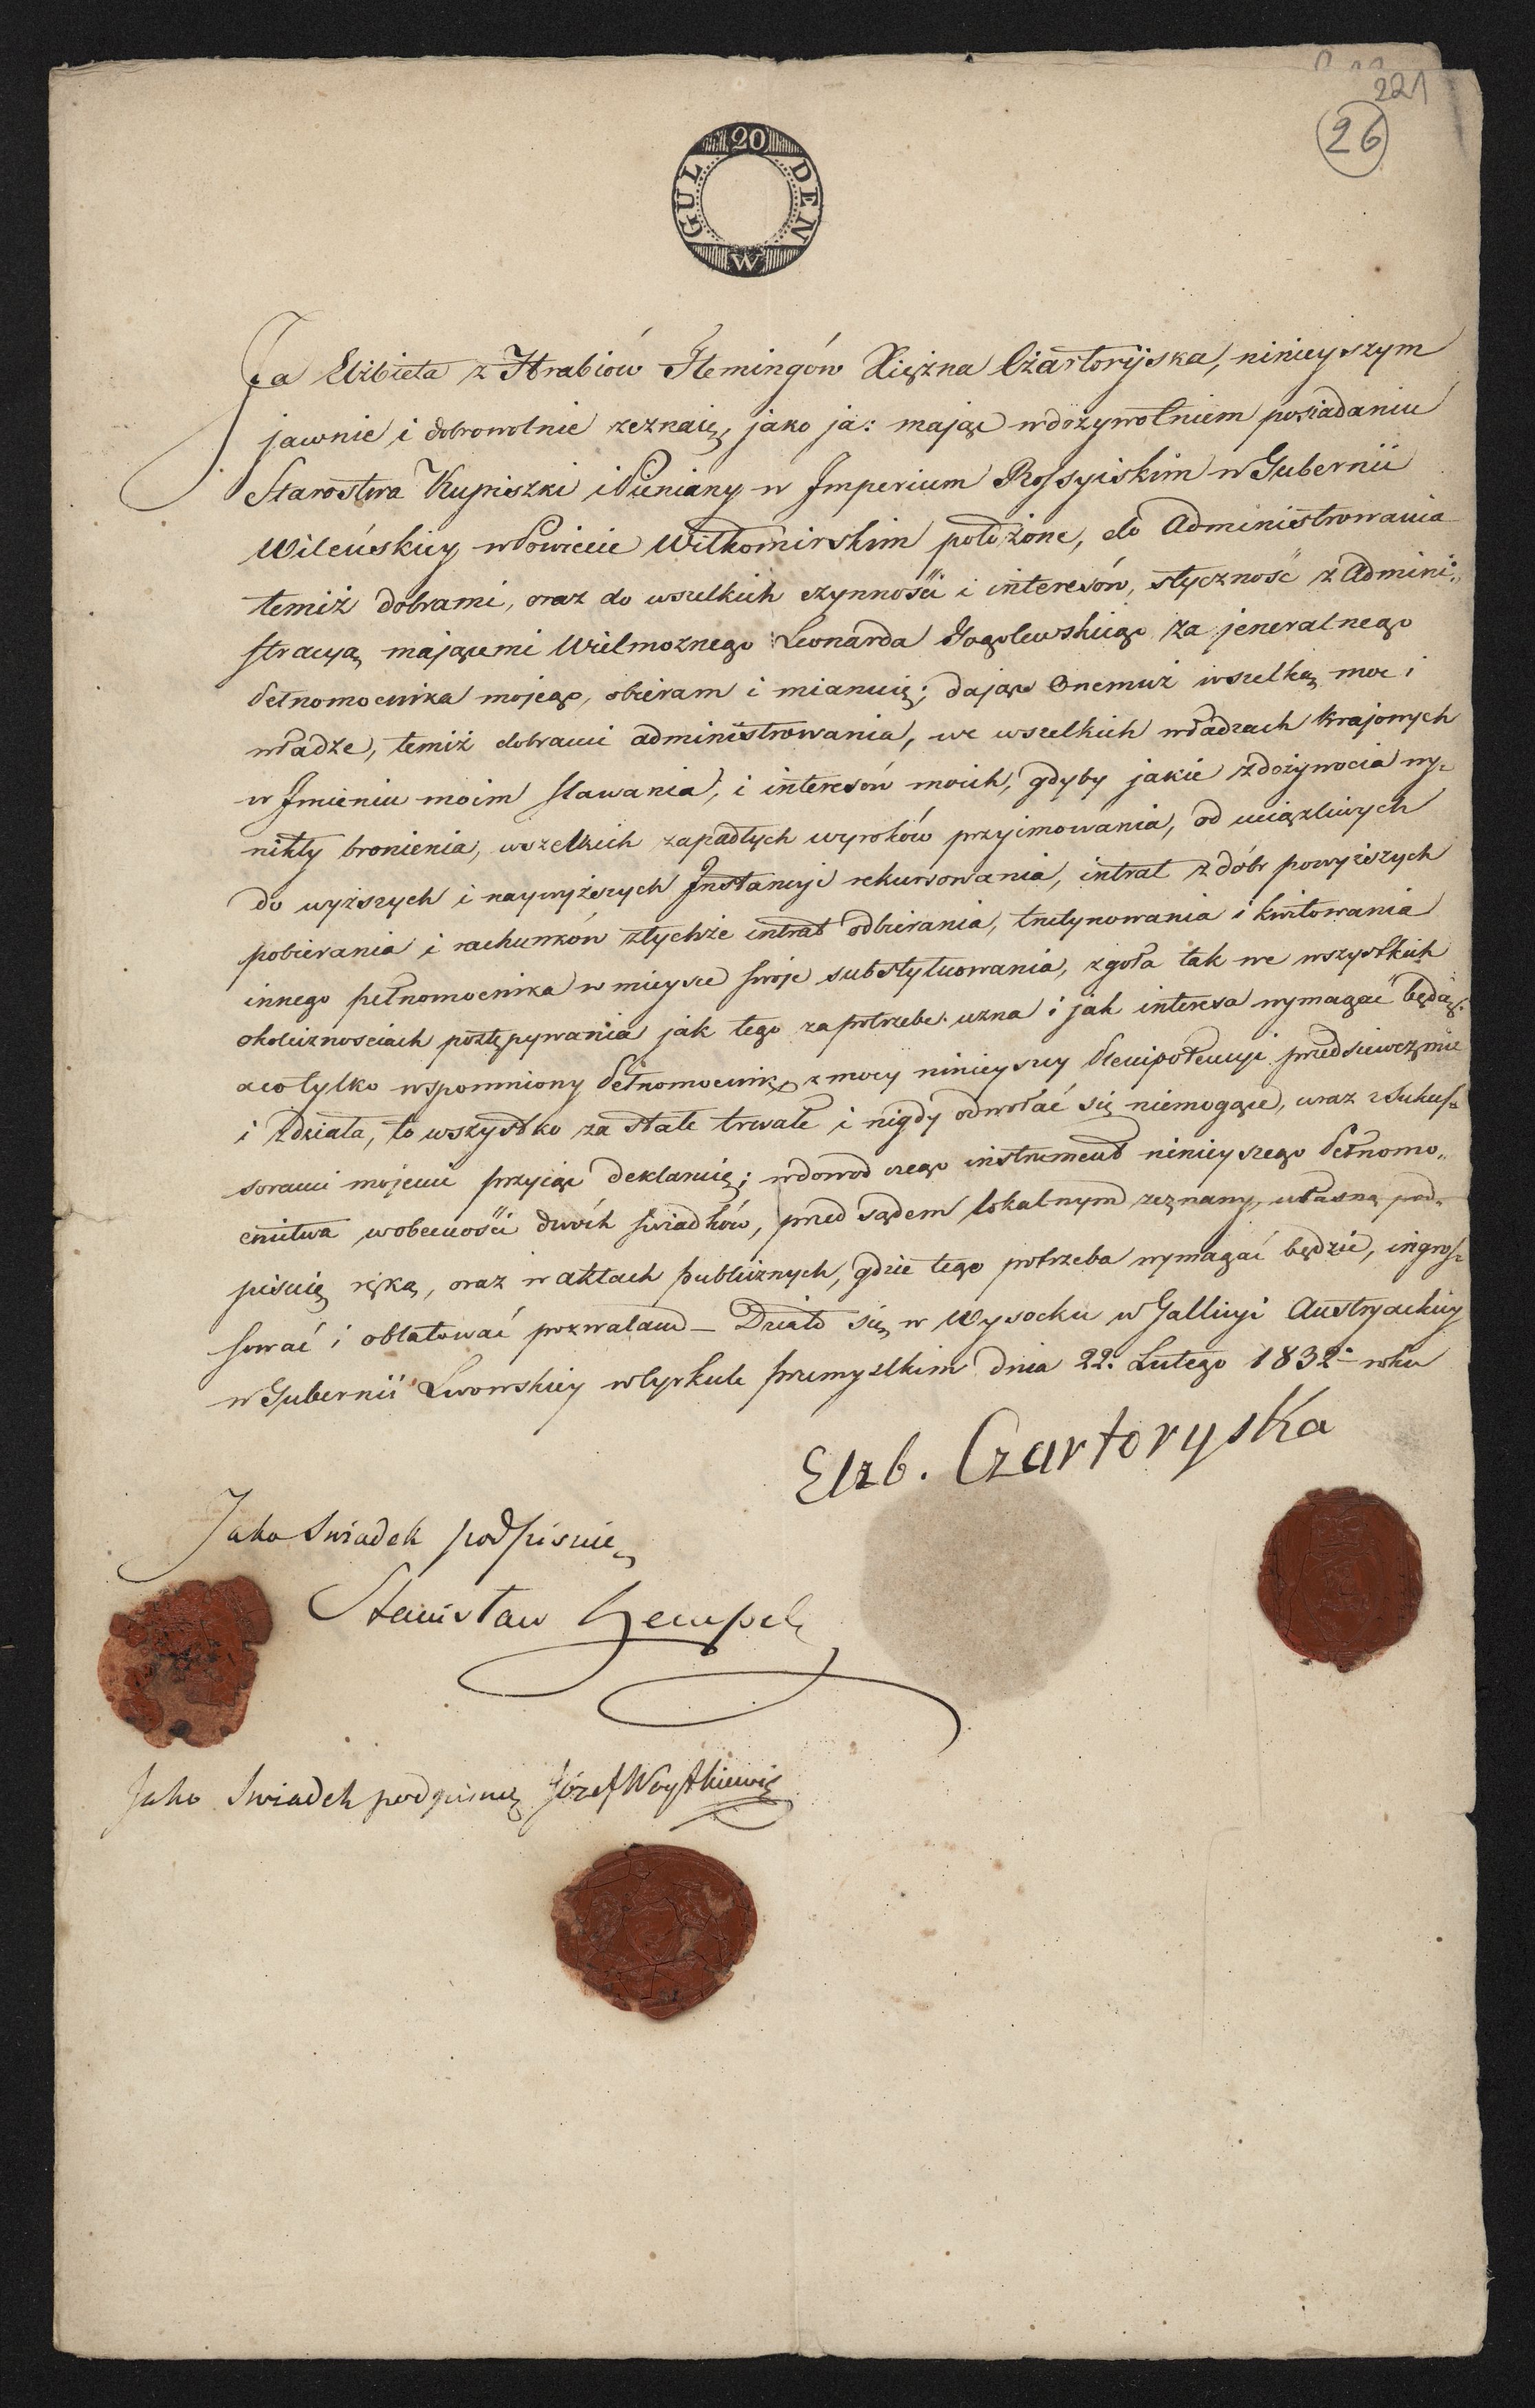 221
26
20 GULDEN W
Ja Elżbieta z Hrabiów Flemingów Xiężna Czartoryjska, ninieyszym
jawnie i dobrowolnie zeznaię, jako ja: mając w dożywotniem posiadaniu
Starostwa Kupiszki i Pieniany w Imperium Rossyiskim w Gubernii
Wileńskiey w Powiecie Wiłkomirskim położone, do Administrowania
temiż dobrami, oraz do wszelkich czynności i interesów, styczność z Admini„
stracyą mającemi Wielmożnego Leonarda Gogolewskiego za jeneralnego
Pełnomocnika mojego, obieram i mianuię; dając Onemuż wszelką moc i
władze, temiż dobrami administrowania, we wszelkich władzach krajowych
w Imieniu moim stawania, i interesów moich, gdyby jakie z dożywocia wy-
nikły bronienia, wszelkich zapadłych wyroków przyimowania, od uciążliwych
do wyższych i naywyższych Instancyi rekurowania, intrat z dóbr powyższych
pobierania i rachunków z tychże intrat odbierania, trutynowania i kwitowania
innego pełnomocnika w mieysce swoje substytuowania, zgoła tak we wszystkich
okolicznościach postępywania jak tego za potrzebe uzna i jak interesa wymagać będą;
a co tylko wspomniony Pełnomocnik z mocy ninieyszey Plenipotencyi przedsiewezmie
i zdziała, to wszystko za stałe trwałe i nigdy odwołać się niemogące, wraz z Sukces-
sorami mojemi przyiąć deklaruię; w dowod czego instrument ninieyszego Pełnomo„
cnictwa w obecności dwóch świadków, przed sądem lokalnym zeznany, własną pod-
pisuię ręką, oraz w aktach publicznych, gdzie tego potrzeba wymagać będzie, ingros-
sować i oblatować pozwalam – Działo się w Wysocku w Gallicyi Austryackiey
w Gubernii Lwowskiey w Cyrkule przemyslkim dnia 22. Lutego 1832. roku
Elzb. Czartoryska
Jako Swiadek podpisuię
Stanisław Hempel
Jako Swiadek podpisuię Józef Woytkiewicz